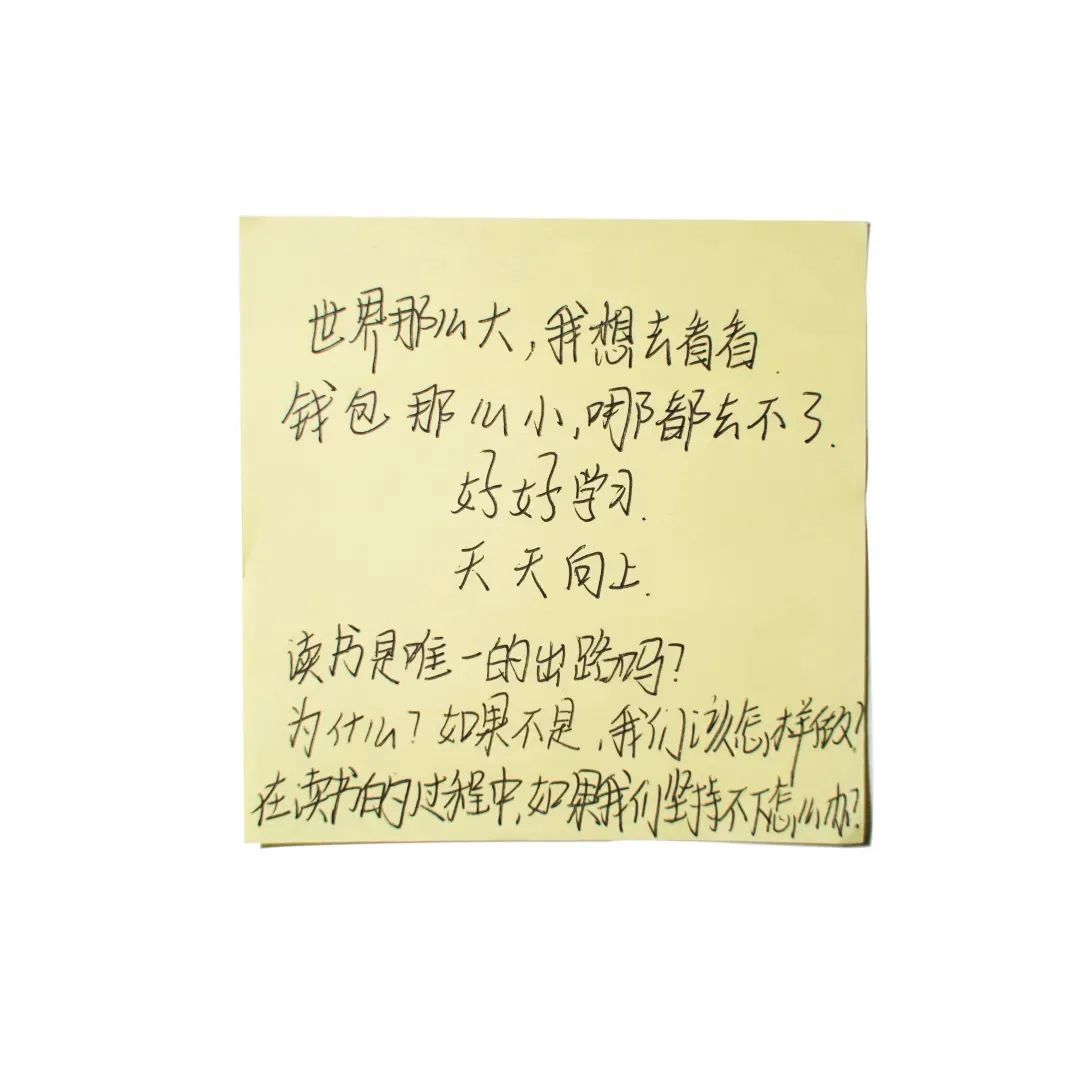 世界那么大,我想去看看.
钱包那么小,哪都去不了.
好好学习.
天天向上.
读书是唯一的出路吗?
为什么?如果不是,我们该怎样做?
在读书的过程中,如果我们坚持不下怎么办?